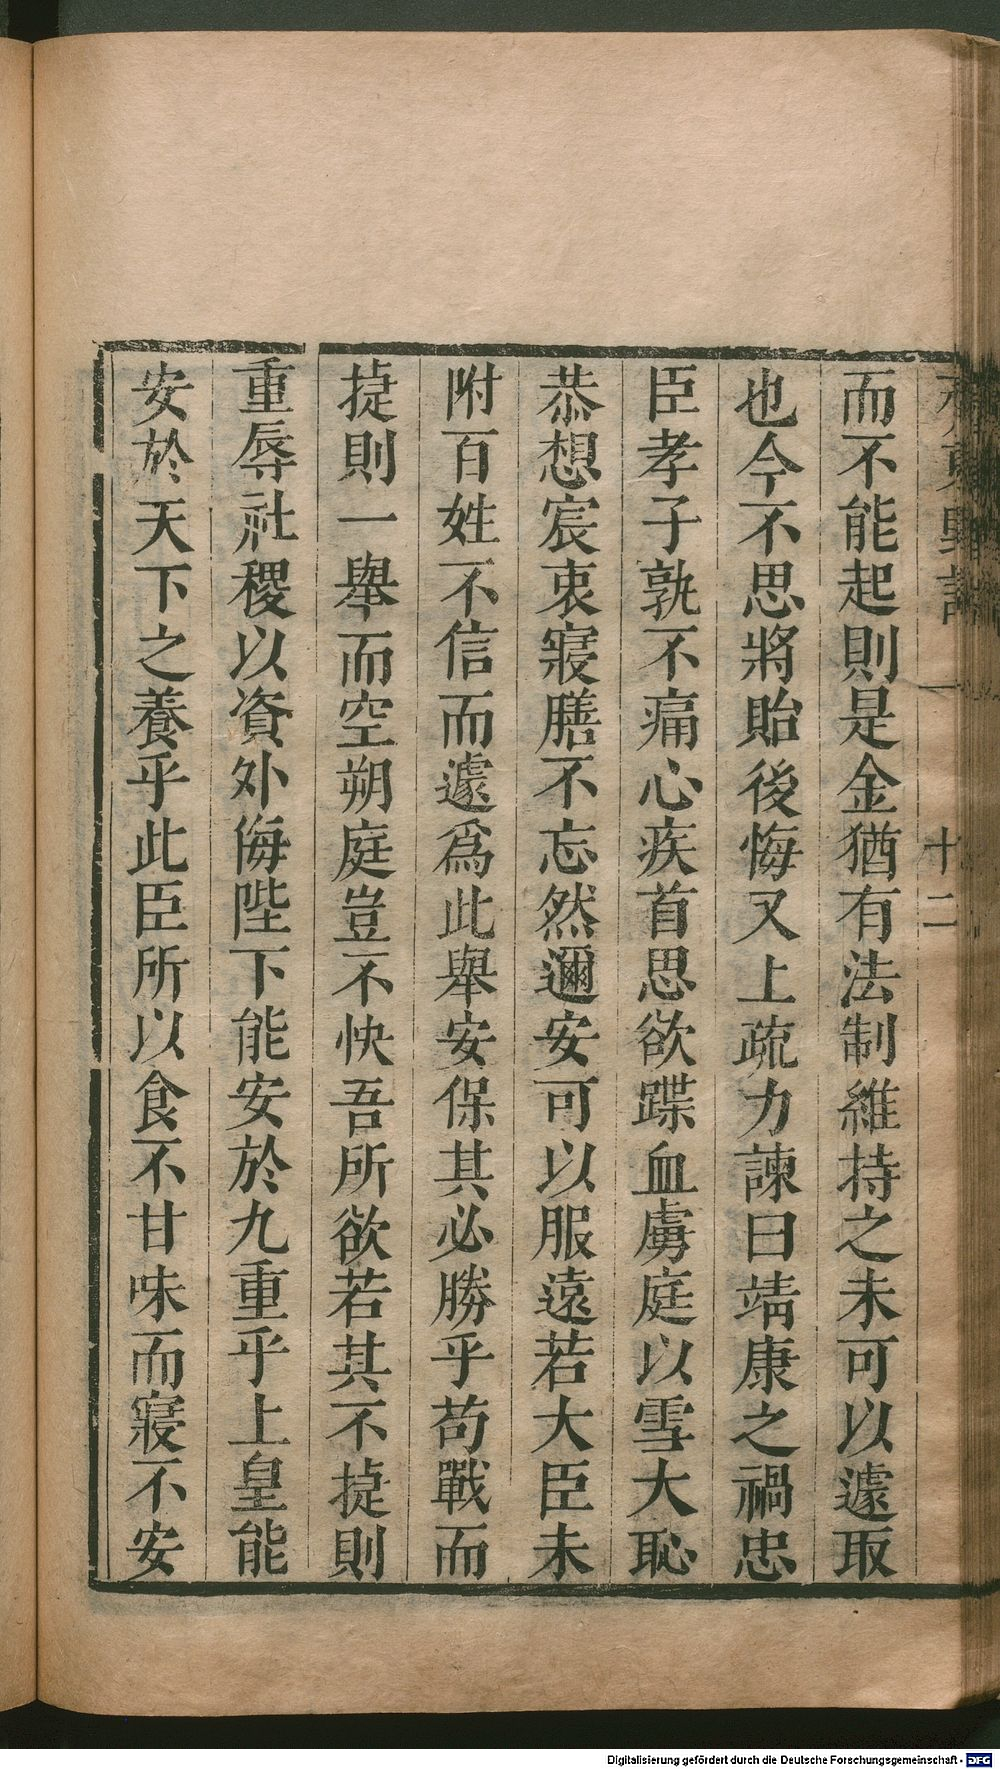 而不能起則是金猶有法制維持之未可以遽取
也今不思將貽後悔又上疏力諫曰靖康之禍忠
臣孝子孰不痛心疾首思欲蹀血虜庭以雪大恥
恭想宸衷寢膳不忘然邇安可以服遠若大臣未
附百姓不信而遽爲此舉安保其必勝乎苟戰而
捷則一舉而空朔庭豈不快吾所欲若其不捷則
重辱社稷以資外侮陛下能安於九重乎上皇能
安於天下之養乎此臣所以食不甘味而寢不安
十二
Digitalisierung gefördert durch die Deutsche Forschungsgemeinschaft - DFG